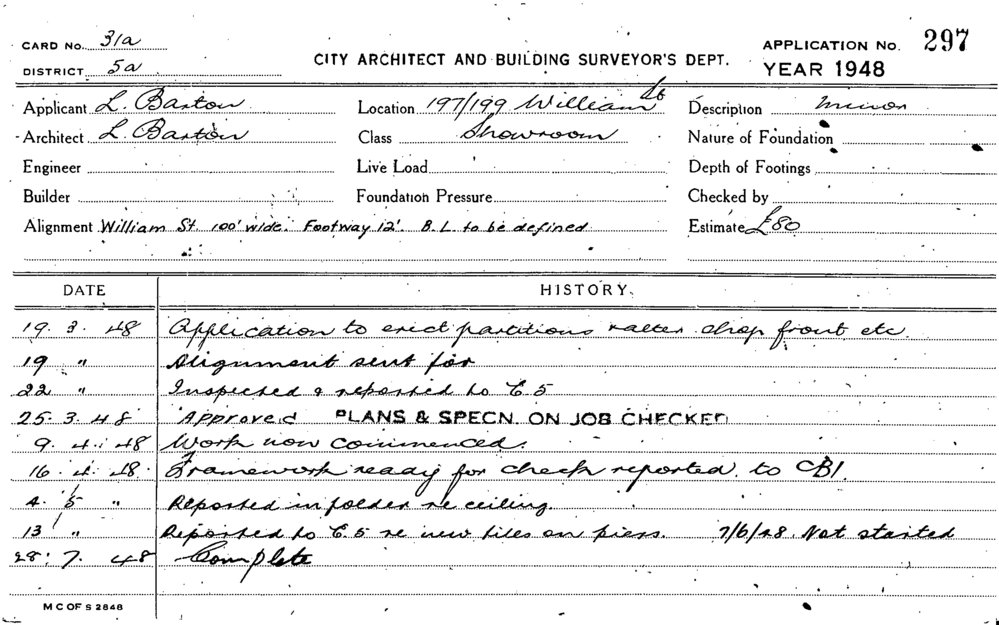 CARD No. 31a
DISTRICT 5a
CITY ARCHITECT AND BUILDING SURVEYOR'S DEPT.
APPLICATION No. 297
YEAR 1948
Applicant L. Barton Location 197/199 William St Description minor
Architect L. Barton Class Showroom Nature of Foundation
Engineer Live Load Depth of Footings
Builder Foundation Pressure Checked by
Alignment William St. 100' wide. Footway 12'. B.L. to be defined Estimate £80
DATE HISTORY.
19. 3. 48 Application to erect partitions & alter shop front etc.
19 " Alignment sent for
22 " Inspected & reported to E.5
25. 3. 48 Approved PLANS & SPECN. ON JOB CHECKED
9. 4. 48 Work now commenced.
16. 4. 48. Framework ready for check reported to CBI.
4. 5 " Reported in folder re ceiling.
13 " Reported to E.5 re new tiles on piers. 7/6/48. Not started
28. 7. 48 Complete
M C OF S 2848